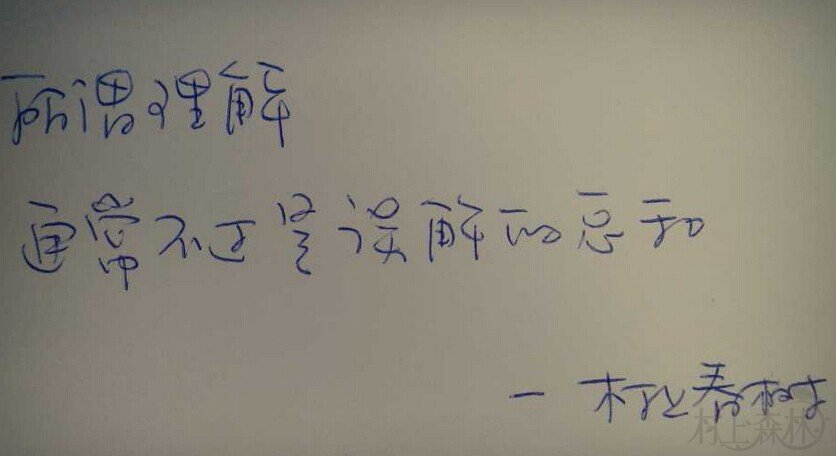 所谓理解
通常不过是误解的总和
— 村上春树
村上森林